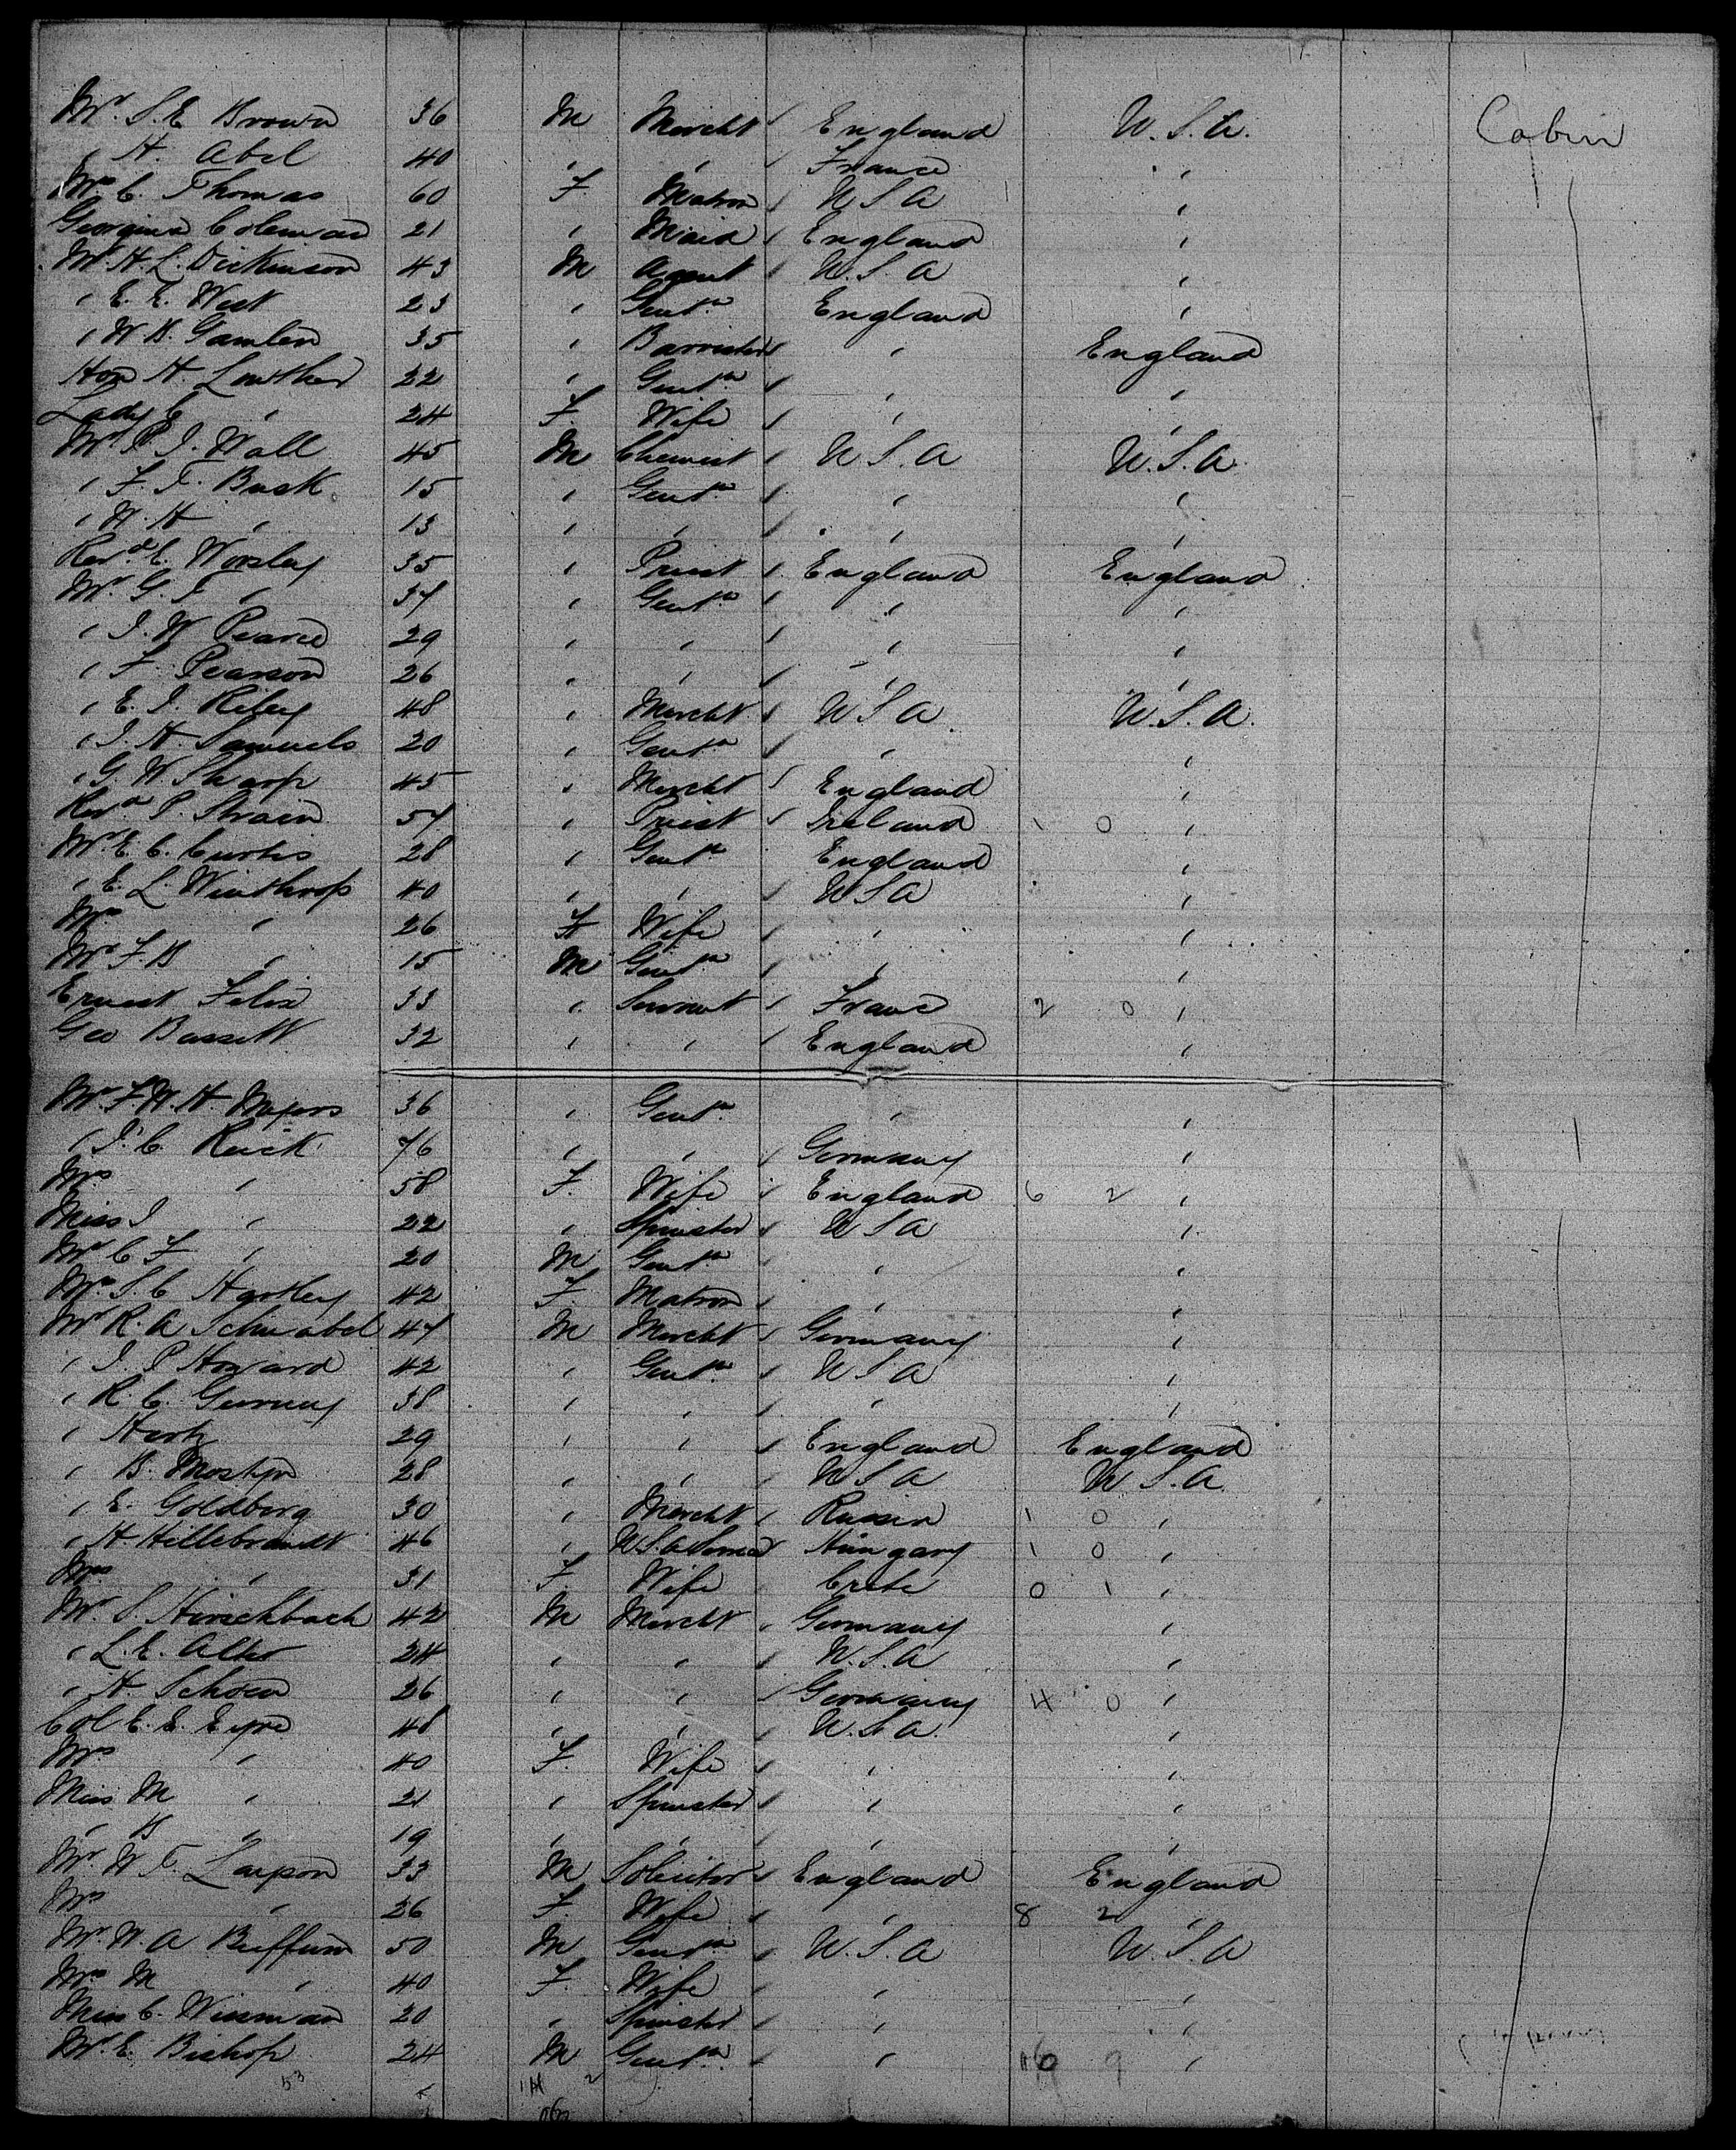 Mr. S. E. Brown 36 M Mercht England U.S.A. Cabin
" H. Abel 40 " " France "
Mrs C. Thomas 60 F. Matron U S A "
Georgina Coleman 21 " Maid England "
Mr H. L. Dickinson 43 M Agent U.S.A "
" E. E. West 23 " Gentn England "
" W. B. Gamlen 35 " Barrister " England
Hon H. Lowther 22 " Gentn " "
Lady E " 24 F. Wife " "
Mr P. J. Wall 45 M Chemist U S A U.S.A.
" F. T. Busk 15 " Gentn " "
" W. H " 13 " " " "
Revd E. Worsley 35 " Priest England England
Mr. G. T " 37 " Gentn " "
" J. W Pearce 29 " " " "
" F. Pearson 26 " " " "
" E. J. Riley 48 " Mercht U S A U.S.A.
" J. H. Samuels 20 " Gentn " "
" G. W Sharp 45 " Mercht England "
Revd P. Strain 57 " Priest Ireland 1 0 "
Mr E. C. Curtis 28 " Gentn England "
" E. L. Winthrop 40 " " U S A "
Mrs " 26 F Wife " "
Mr F B " 15 M Gentn " "
Ernest Felix 33 " Servant France 2 0 "
Geo Bassett 32 " " England "
Mr. F. W. H. Myers 36 " Gentn " "
" J. C. Reick 76 " " Germany "
Mrs " 58 F. Wife England 6 2 "
Miss J " 22 " Spinster U S A "
Mr C F " 20 M Gentn " "
Mrs. S. C Hartley 42 F. Matron " "
Mr R. A Schwabel 47 M Mercht Germany "
" J. P Howard 42 " Gentn U S A "
" R. C. Gurney 38 " " " "
" Hertz 29 " " England England
" B. Mostyn 28 " " U S A U S.A.
" E. Goldberg 30 " Mercht Russia 1 0 "
" H Hillebrandt 46 " Hungary 1 0 "
Mrs " 31 F. Wife Crete 0 1 "
Mr. S. Hirschbach 42 M Mercht Germany "
" L. E. Alter 24 " " U.S.A "
" H. Schoen 26 " " Germany 4 0 "
Col E. E. Eyre 48 " " U.S.A. "
Mrs " 40 F. Wife " "
Miss M " 21 " Spinster " "
" B " 19 " " " "
Mr. W T. 33 M Solicitor England England
Mrs " 26 F. Wife " 8 2 "
Mr. W. A Buffum 50 M Gentn U.S.A U.S.A
Mrs M " 40 F. Wife " "
Miss C. Wissman 20 " Spinster " "
Mr. E. Bishop 24 M Gentn " 9 "
53